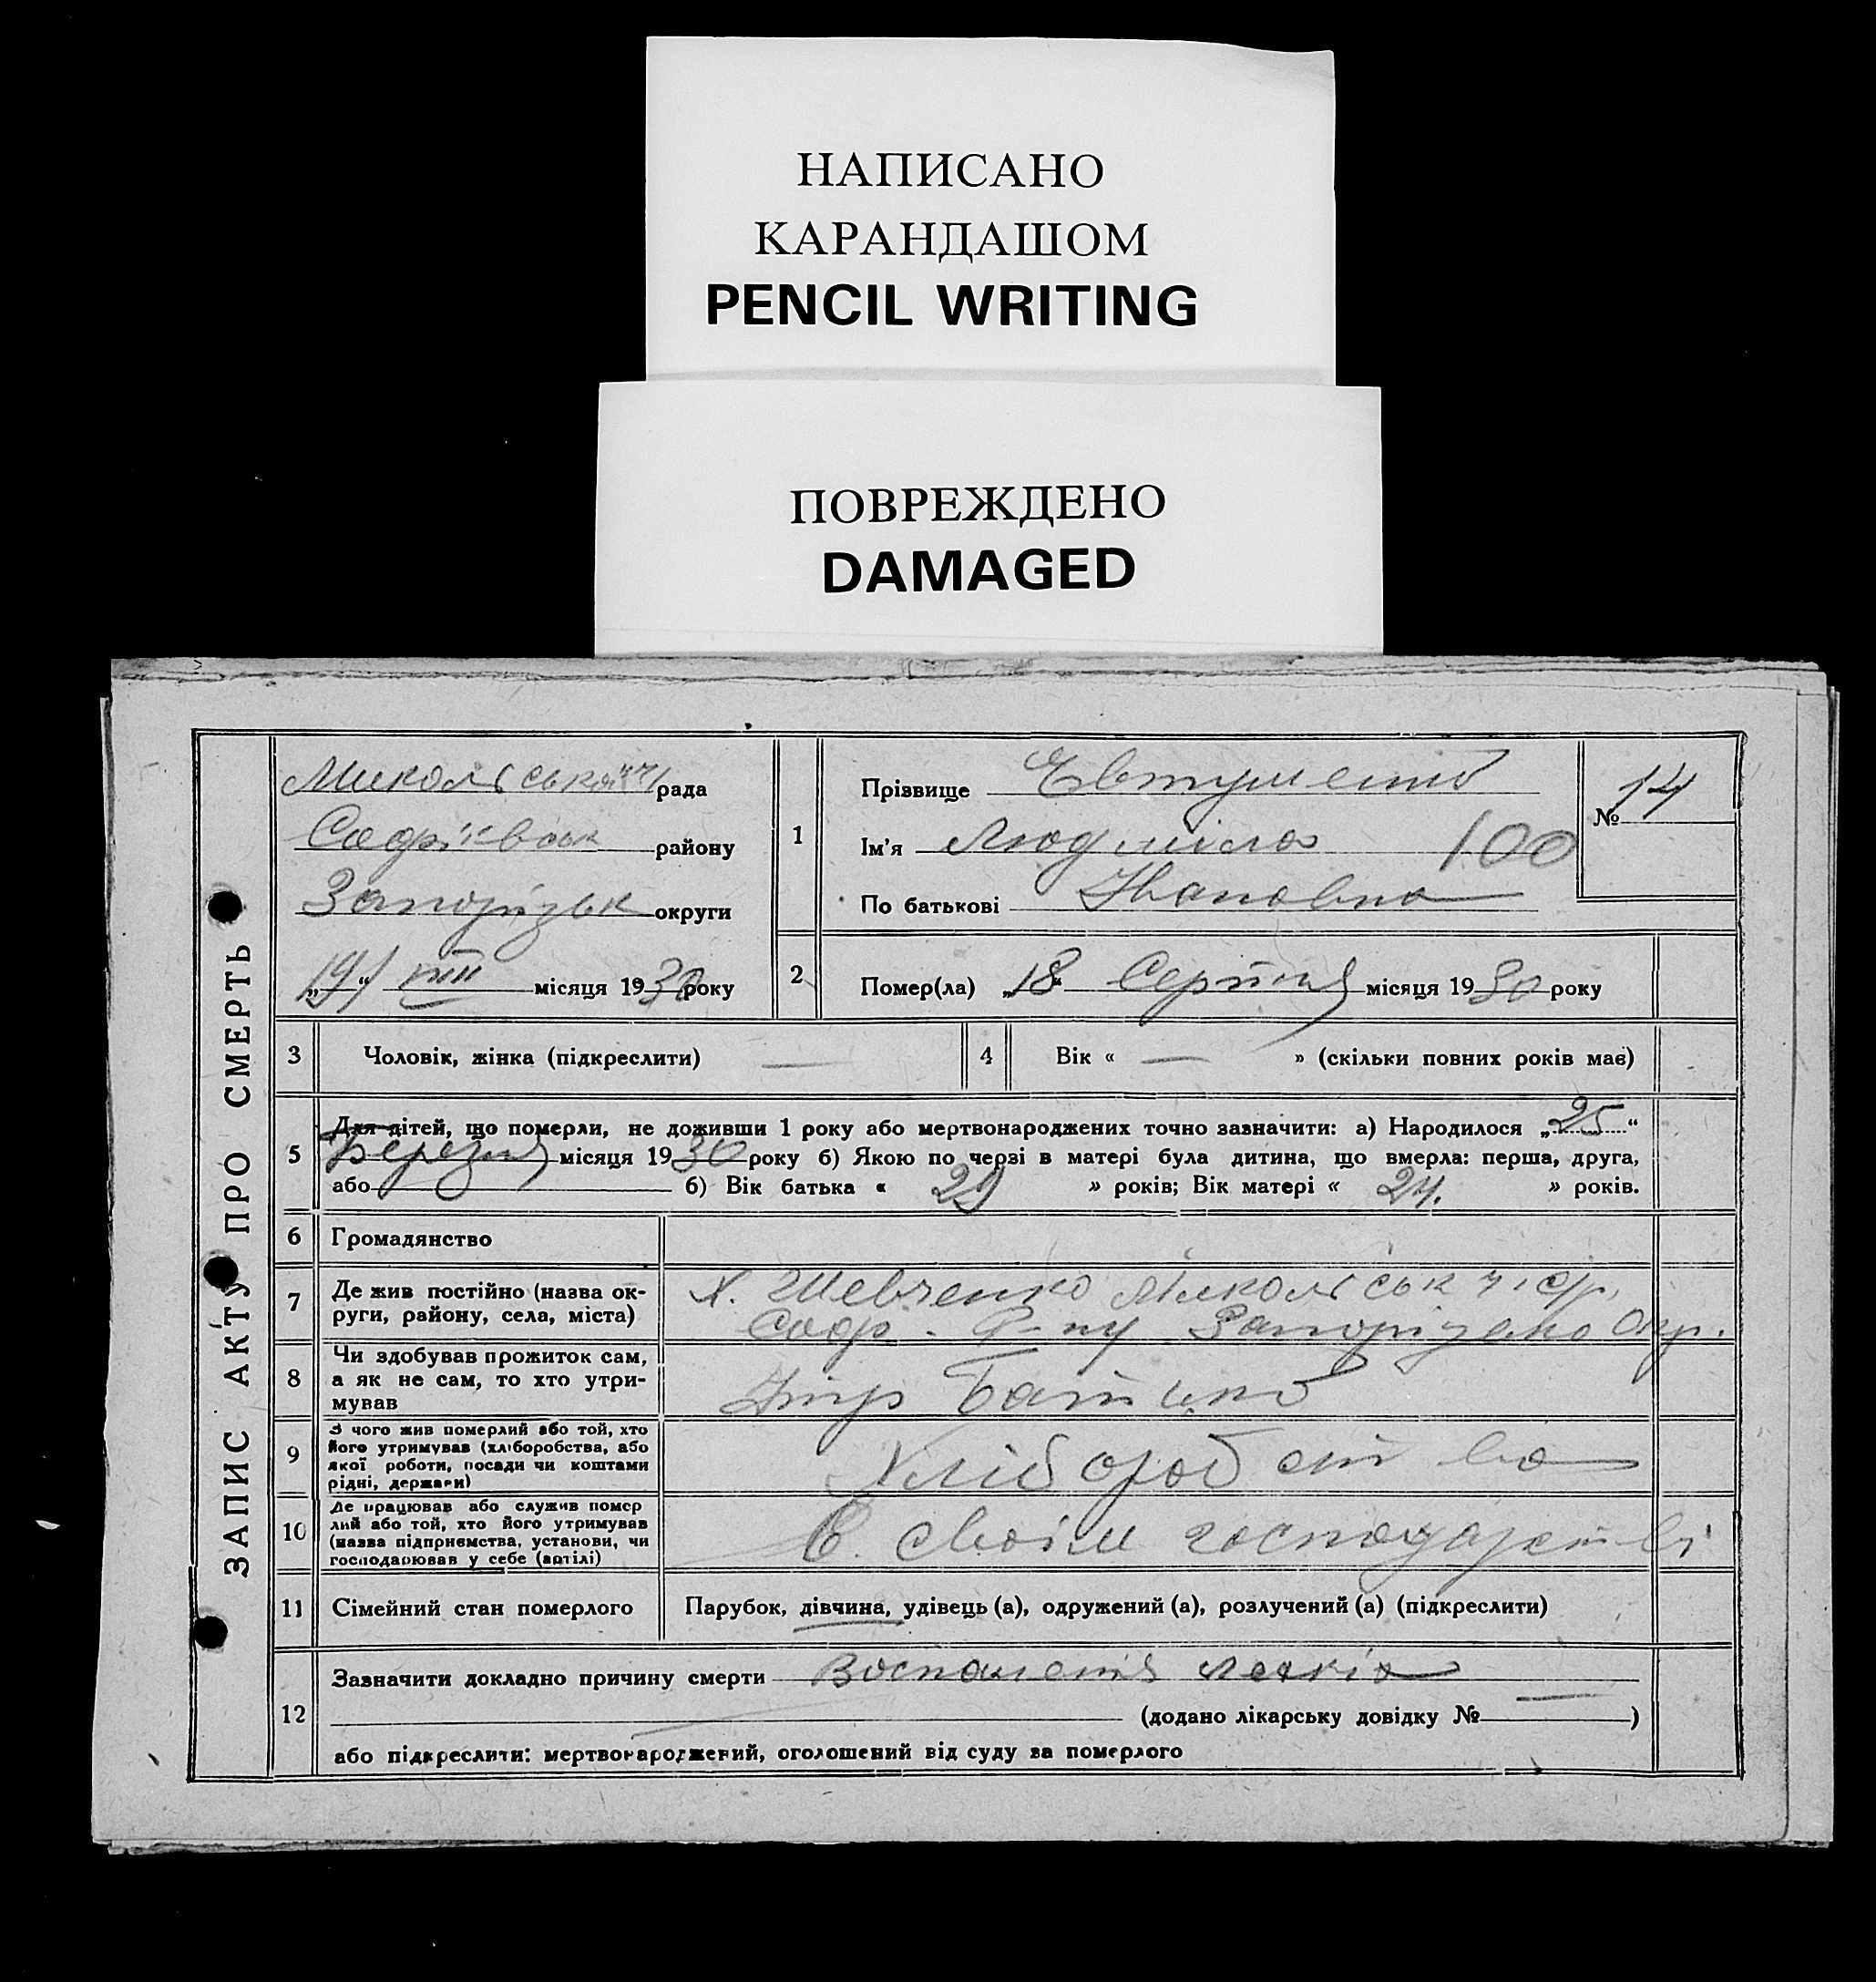 НАПИСАНО
КАРАНДАШОМ
PENCIL WRITING
ПОВРЕЖДЕНО
DAMAGED
ЗАПИС АКТУ ПРО СМЕРТЬ
рада
району
Запорізьк округи
„19“ VIII місяця 1930 року
1
Прізвище Євтушенко
Ім'я Людміла 100
По батькові Івановна
№ 14
2
Помер(ла) „18“ Серпня місяця 1930 року
3 Чоловік, жінка (підкреслити) —
4 Вік « — » (скільки повних років має)
5 Для дітей, що померли, не доживши 1 року або мертвонароджених точно зазначити: а) Народилося „25“
Березня місяця 1930 року б) Якою по черзі в матері була дитина, що вмерла: перша, друга,
або б) Вік батька « 29 » років; Вік матері « 24. » років.
6 Громадянство
7 Де жив постійно (назва ок-
руги, району, села, міста)
Х. Шевченко
Соф. Р-ну Окр.
8 Чи здобував прожиток сам,
а як не сам, то хто утри-
мував
Утр Батько
9 З чого жив померлий або той, хто
його утримував (хліборобства, або
якої роботи, посади чи коштами
рідні, держави)
Хліборобство
10 Де працював або служив помер
лий або той, хто його утримував
(назва підприємства, установи, чи
господарював у себе (артілі)
В своїм господарстві
11 Сімейний стан померлого Парубок, дівчина, удівець (а), одружений (а), розлучений (а) (підкреслити)
12 Зазначити докладно причину смерти Воспаленія легкіх
(додано лікарську довідку № — )
або підкреслити: мертвонароджений, оголошений від суду за померлого